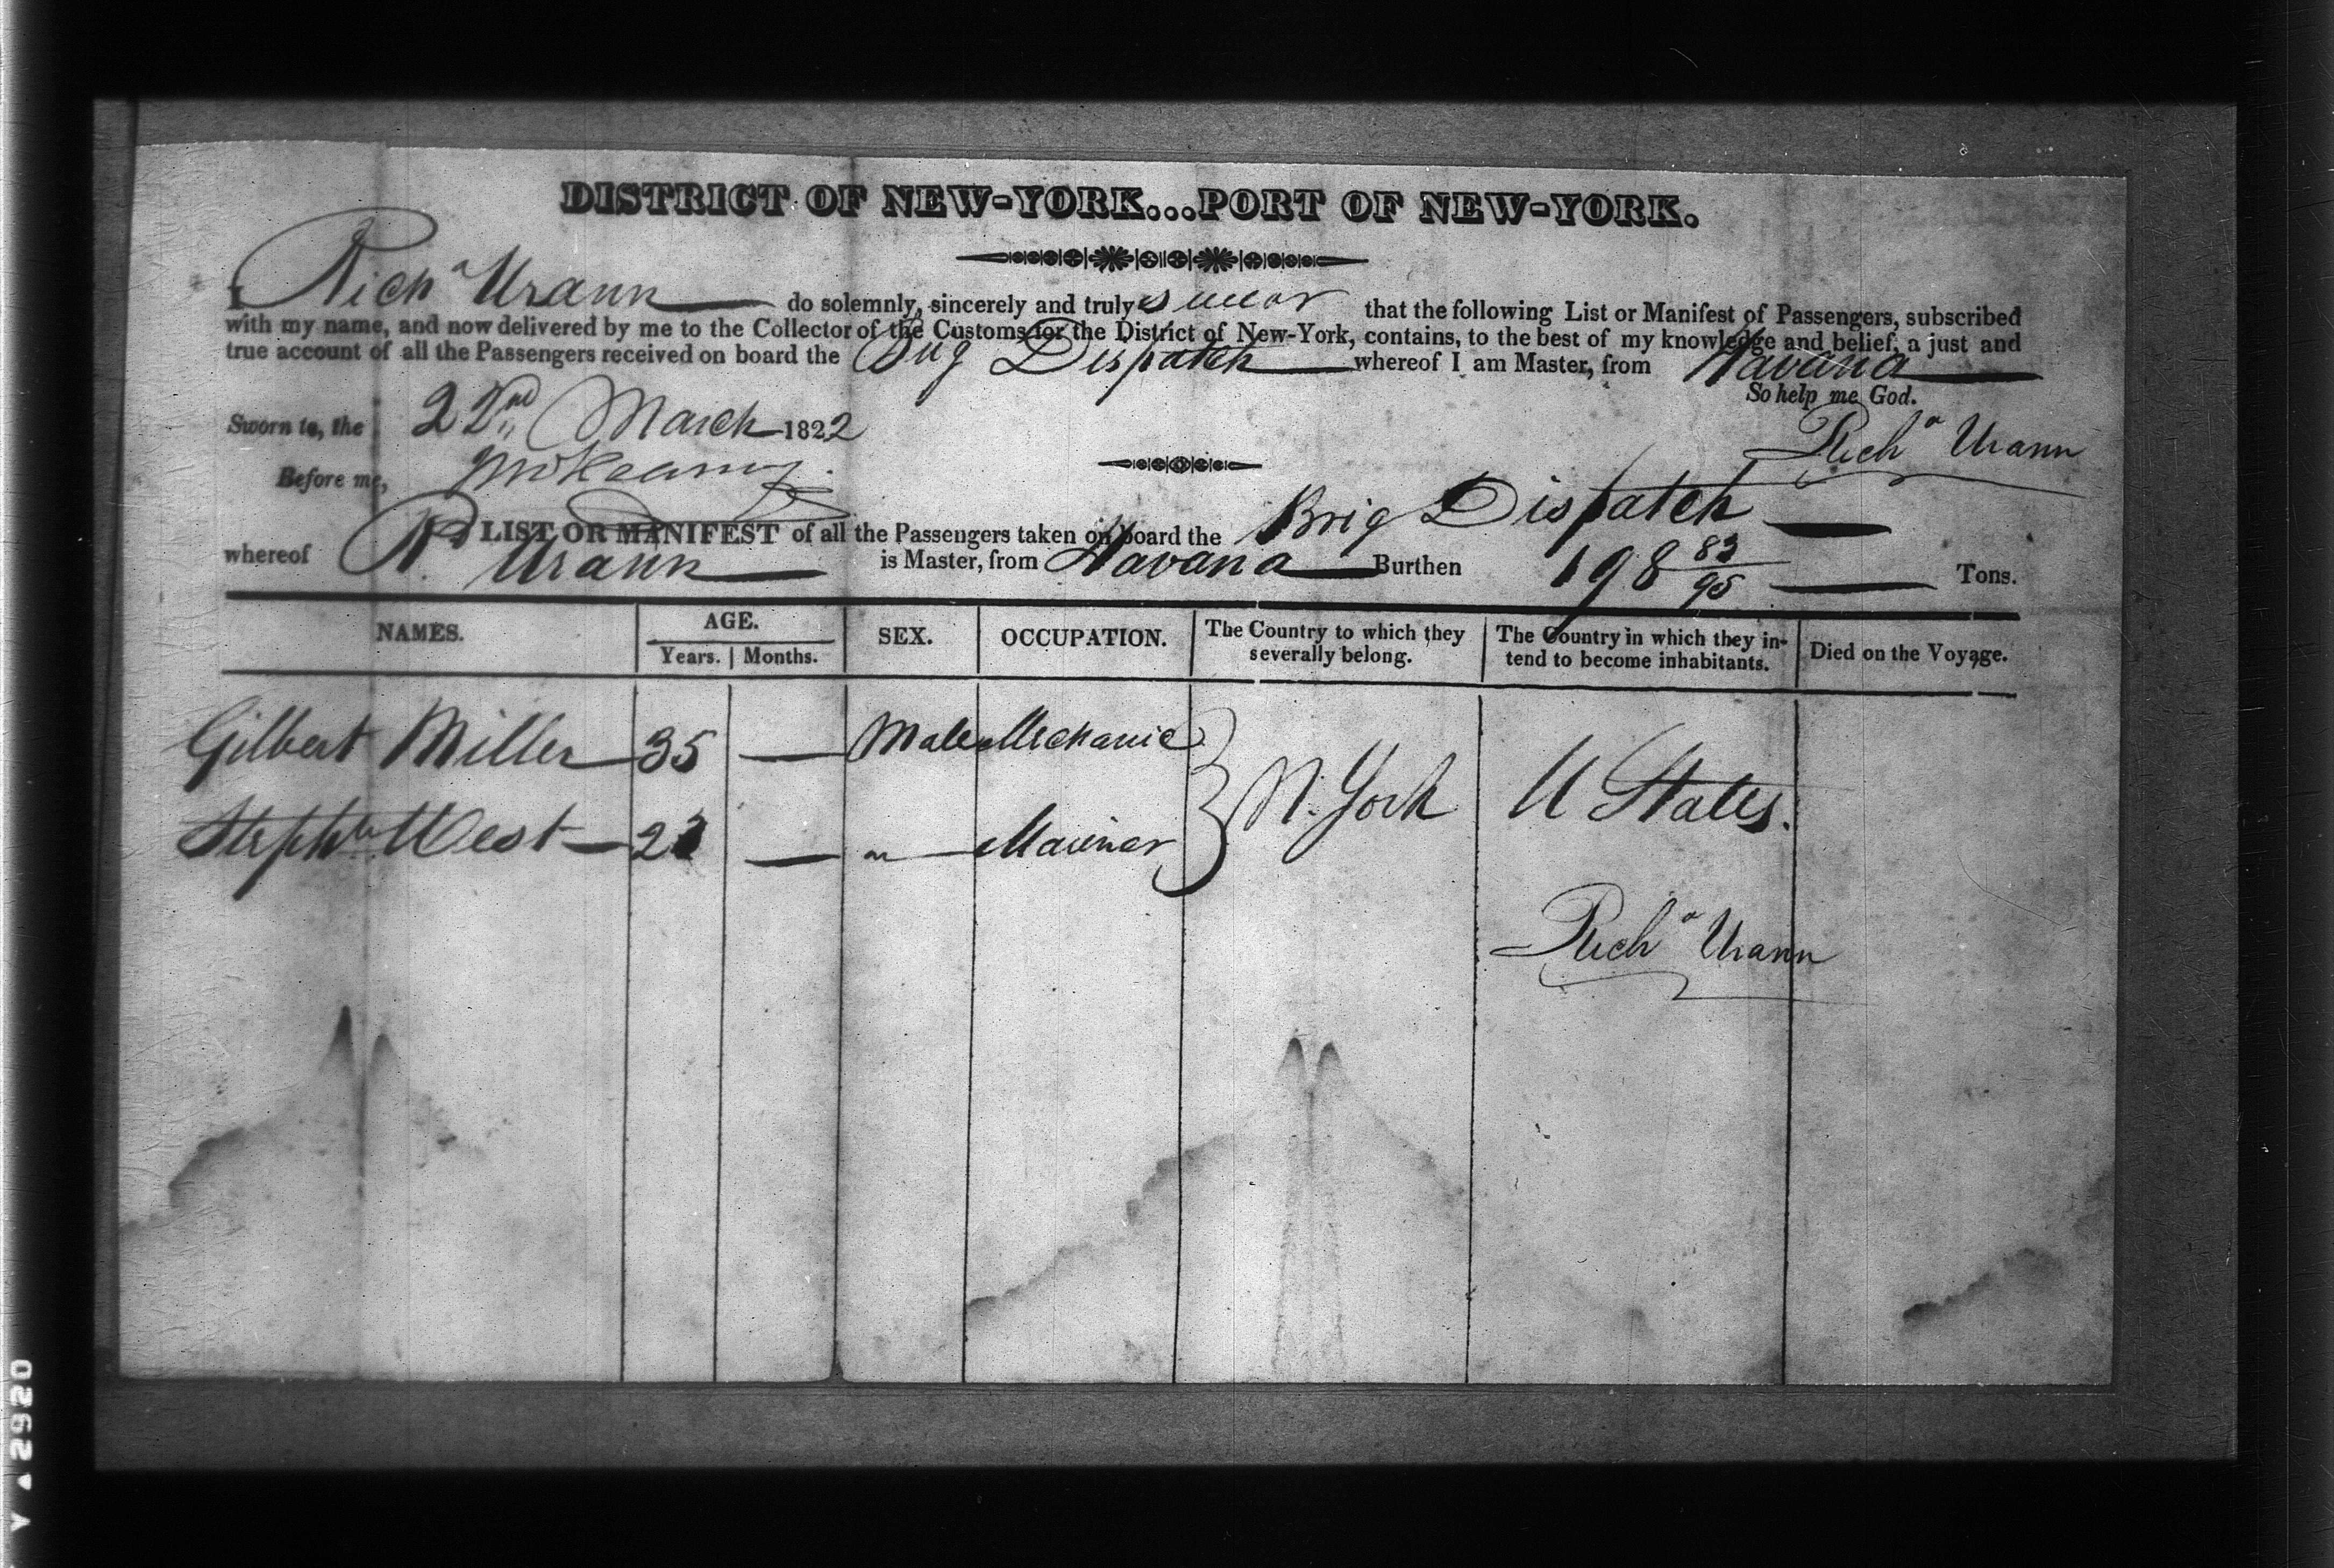 DISTRICT OF NEW-YORK...PORT OF NEW-YORK.
I Richd Urann do solemnly, sincerely and truly swear that the following List or Manifest of Passengers, subscribed
with my name, and now delivered by me to the Collector of the Customs for the District of New-York, contains, to the best of my knowledge and belief, a just and
true account of all the Passengers received on board the Brig Dispatch whereof I am Master, from Havana
So help me God.
Sworn to, the 22nd March 1822
Richd Urann
Before me,
LIST OR MANIFEST of all the Passengers taken on board the Brig Dispatch
whereof R. Urann is Master, from Havana Burthen 198 83/95 Tons.
NAMES. AGE. SEX. OCCUPATION. The Country to which they severally belong. The Country in which they in-tend to become inhabitants. Died on the Voyage.
Years. Months.
Gilbert Miller 35 — Male Mechanic
N. York U States.
Stephn West — — " Mariner
Richd Urann
V 2920